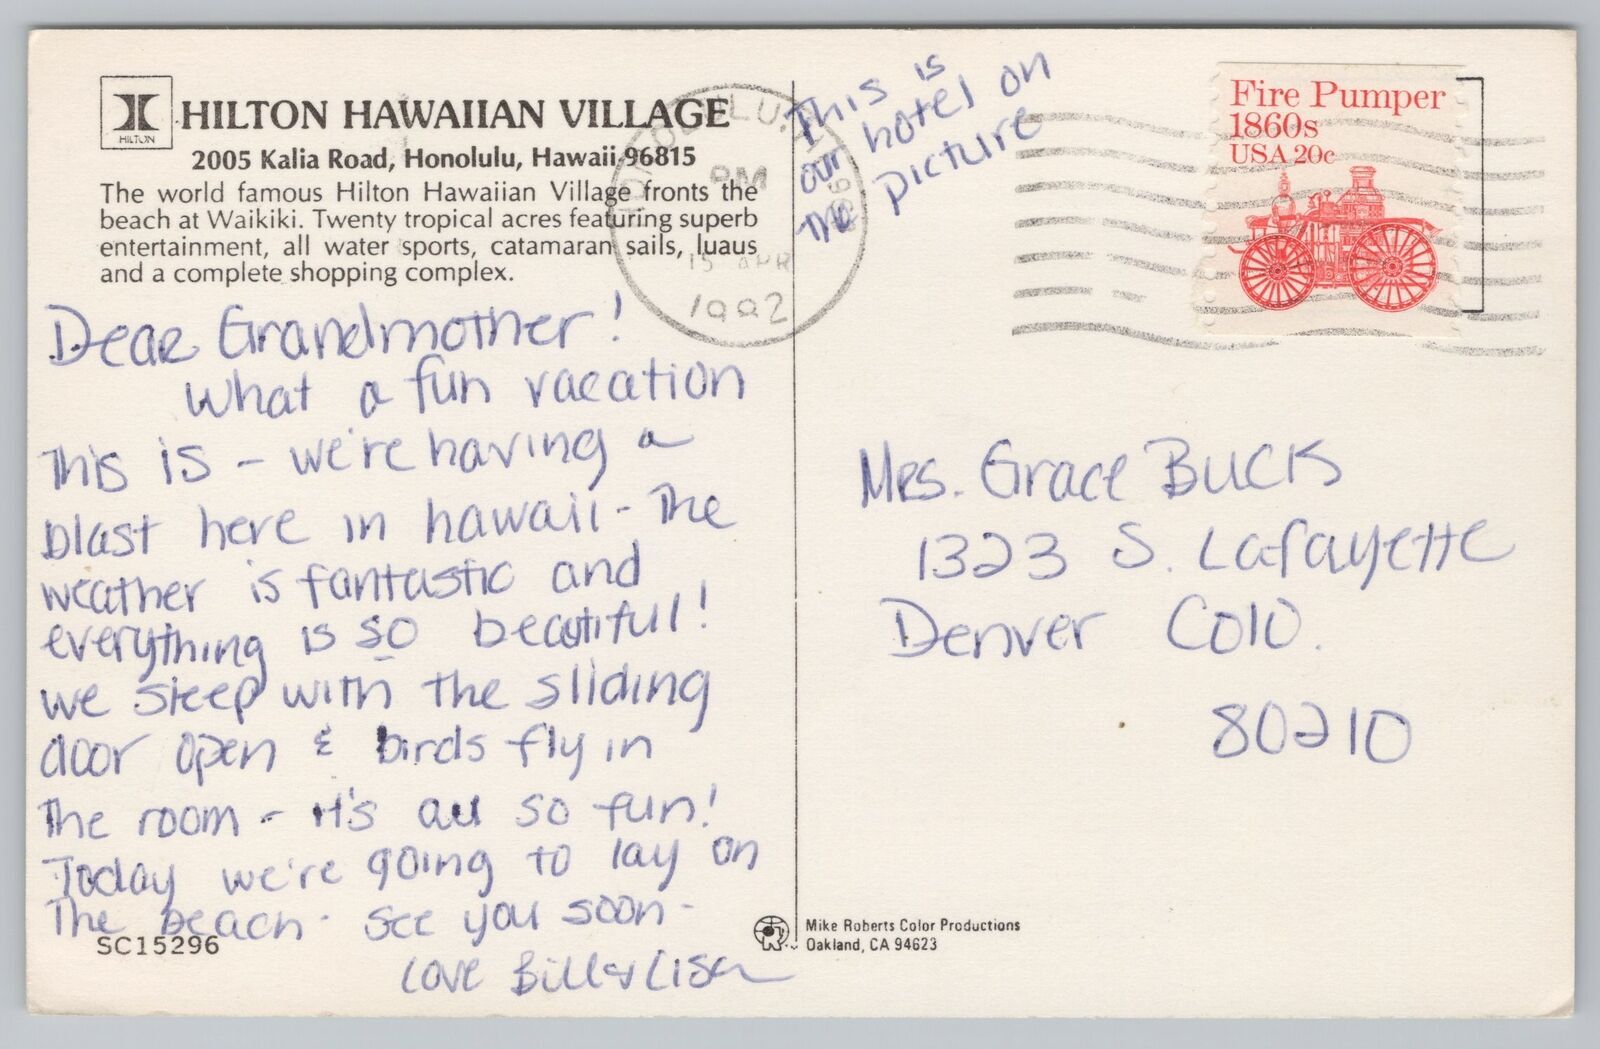 HILTON
HILTON HAWAIIAN VILLAGE
2005 Kalia Road, Honolulu, Hawaii 96815
The world famous Hilton Hawaiian Village fronts the
beach at Waikiki. Twenty tropical acres featuring superb
entertainment, all water sports, catamaran sails, luaus
and a complete shopping complex.
PM
15 APR
1992
This is
our hotel on
the picture
Fire Pumper
1860s
USA 20c
Dear Grandmother!
What a fun vacation
This is - we're having a
blast here in hawaii - The
weather is fantastic and
everything is so beautiful!
we sleep with the sliding
door open & birds fly in
the room - it's all so fun!
Today we're going to lay on
The beach - see you soon -
Love Bill & Lisa
SC15296
Mrs. Grace Buck
1323 S. Lafayette
Denver Colo.
80210
Mike Roberts Color Productions
Oakland, CA 94623